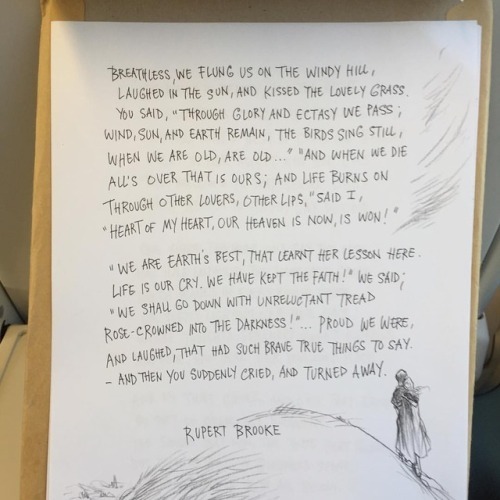 BREATHLESS, WE FLUNG US ON THE WINDY HILL,
LAUGHED IN THE SUN, AND KISSED THE LOVELY GRASS.
YOU SAID, "THROUGH GLORY AND ECTASY WE PASS;
WIND, SUN, AND EARTH REMAIN, THE BIRDS SING STILL,
WHEN WE ARE OLD, ARE OLD..." "AND WHEN WE DIE
ALL'S OVER THAT IS OURS; AND LIFE BURNS ON
THROUGH OTHER LOVERS, OTHER LIPS," SAID I,
"HEART OF MY HEART, OUR HEAVEN IS NOW, IS WON!"
"WE ARE EARTH'S BEST, THAT LEARNT HER LESSON HERE.
LIFE IS OUR CRY. WE HAVE KEPT THE FAITH!" WE SAID;
"WE SHALL GO DOWN WITH UNRELUCTANT TREAD
ROSE-CROWNED INTO THE DARKNESS!"... PROUD WE WERE,
AND LAUGHED, THAT HAD SUCH BRAVE TRUE THINGS TO SAY.
– AND THEN YOU SUDDENLY CRIED, AND TURNED AWAY.
RUPERT BROOKE